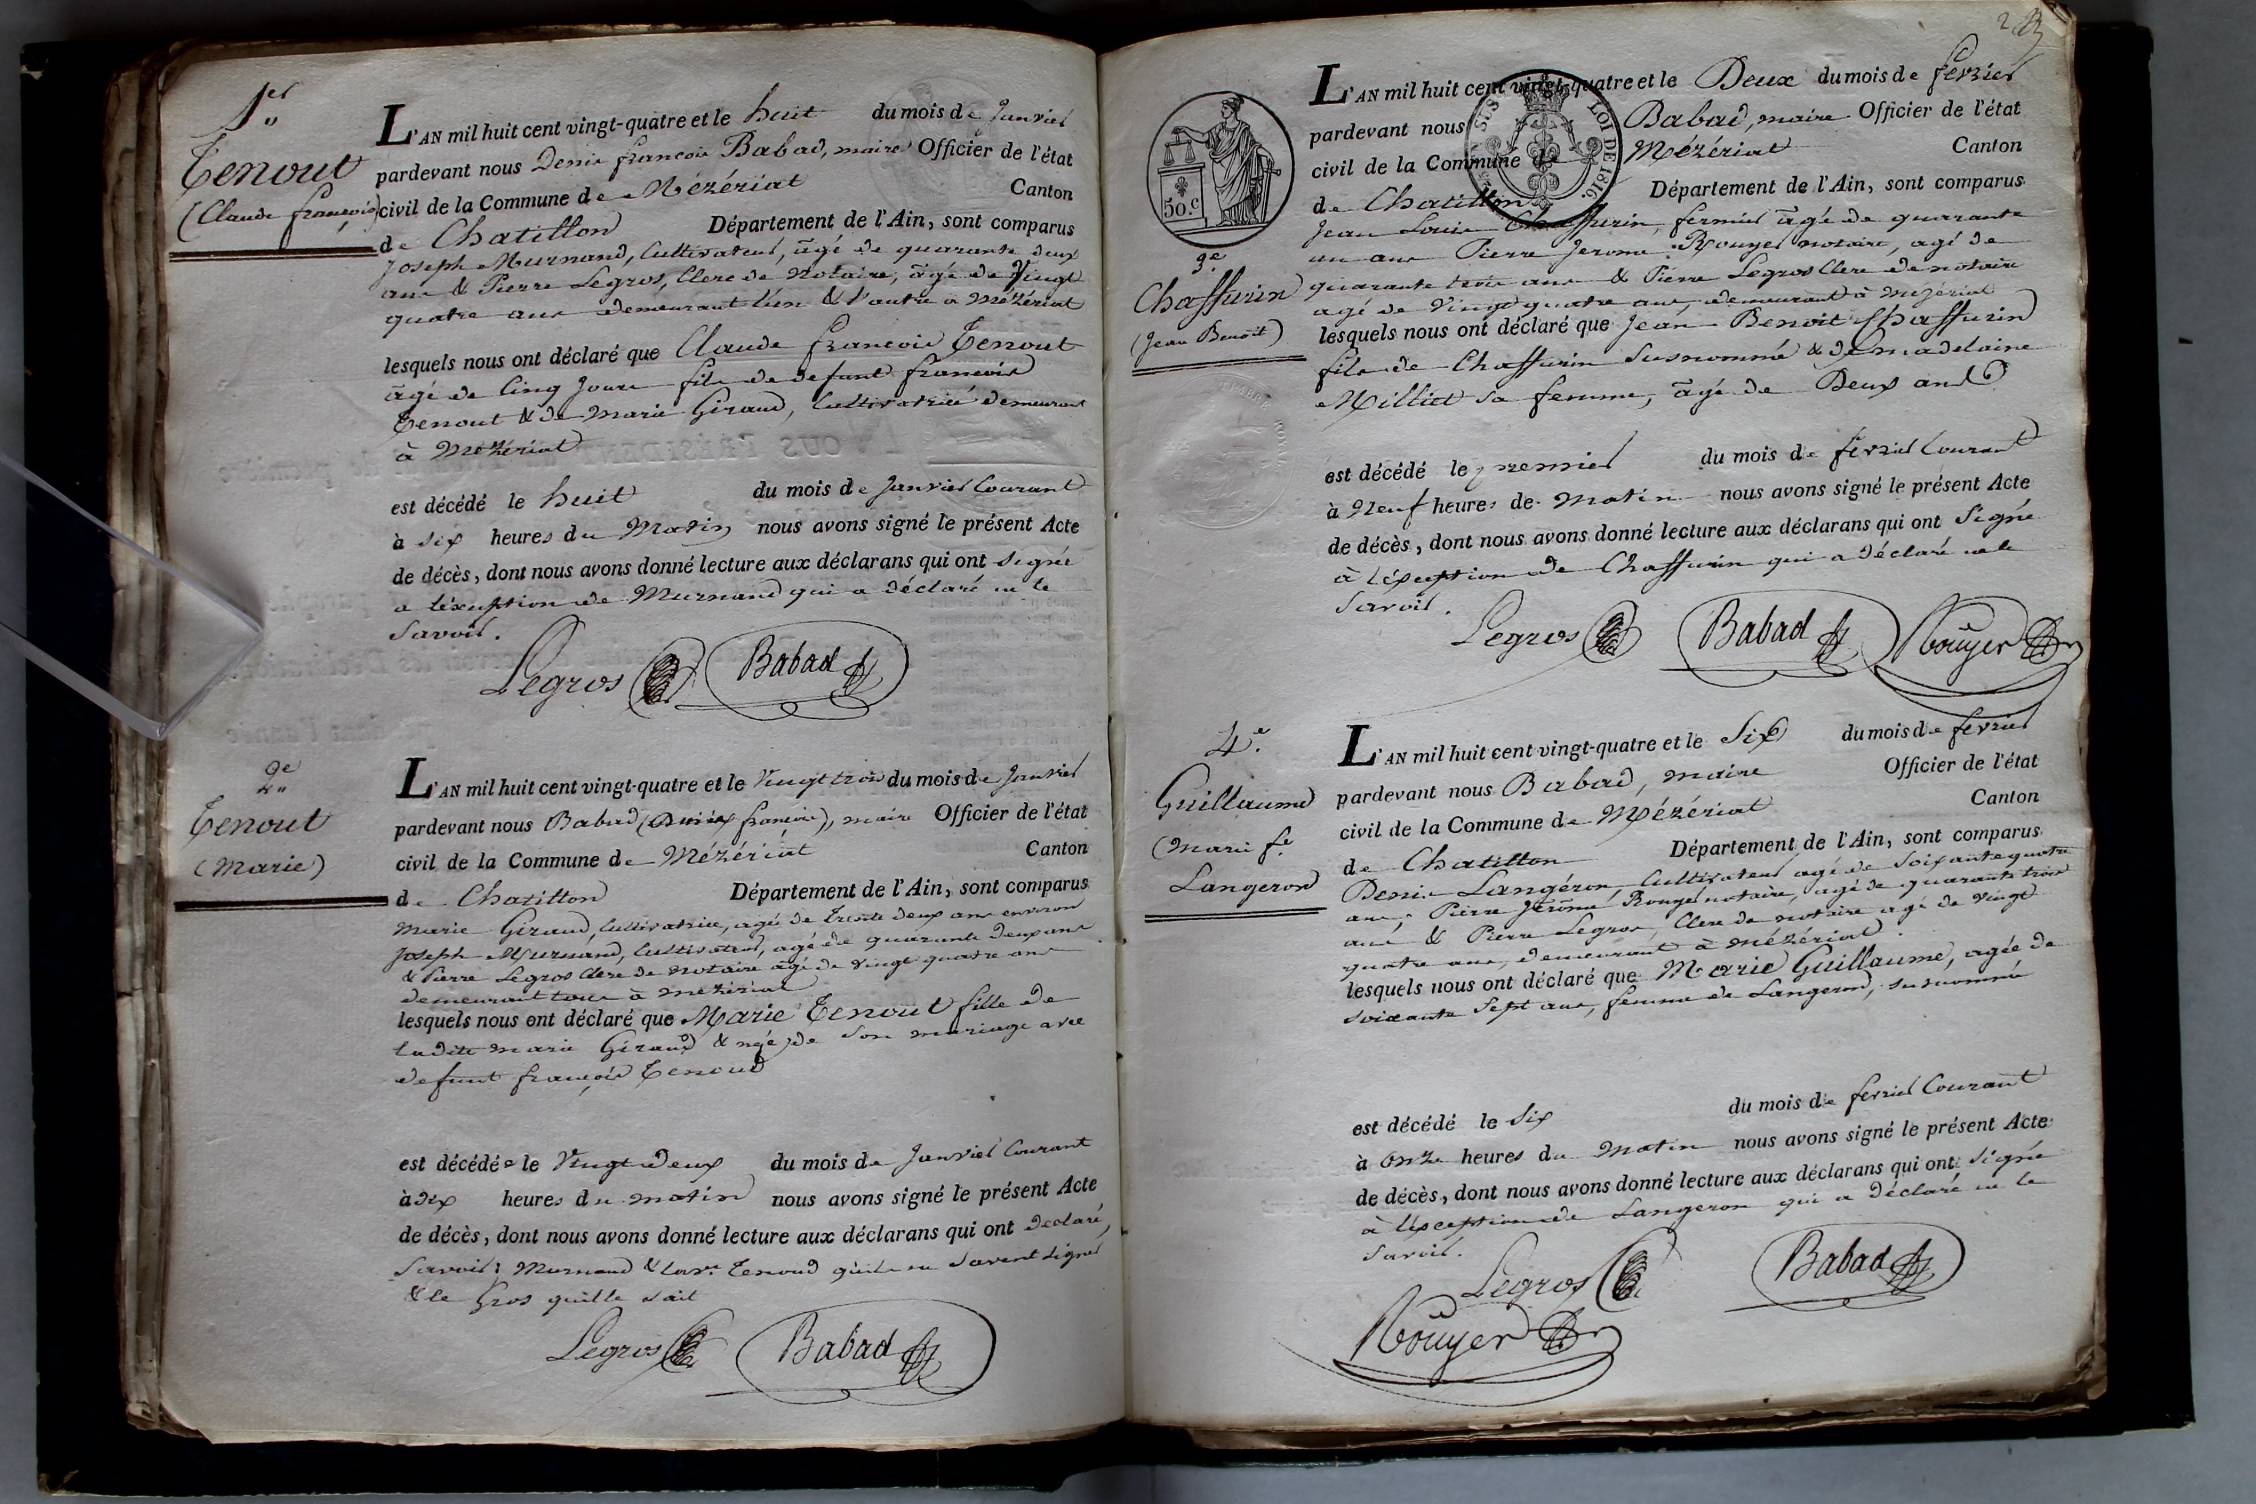 1er
Tenout
(Claude françois)
L'AN mil huit cent vingt-quatre et le huit du mois de Janvier
pardevant nous Denis françois Babad, maire Officier de l'état
civil de la Commune de Mézériat Canton
de Chatillon Département de l'Ain, sont comparus
Joseph Murnand, Cultivateur, âgé de quarante deux
ans & Pierre Legros, Clerc de Notaire, âgé de Vingt
quatre ans demeurant l'un & l'autre a Mézériat
lesquels nous ont déclaré que Claude francois Tenout
âgé de Cinq Jours fils de defunt francois
Tenout & de Marie Giraud, Cultivatrice demeurant
à Mézériat
est décédé le huit du mois de Janvier Courant
à six heures du Matin nous avons signé le présent Acte
de décès, dont nous avons donné lecture aux déclarans qui ont signé
a l'éxception de Murnand qui a déclaré ne le
Savoir.
Legros Babad
2e
Tenout
(Marie)
L'AN mil huit cent vingt-quatre et le Vingt trois du mois de Janvier
pardevant nous Babad (Denis françois), maire Officier de l'état
civil de la Commune de Mézériat Canton
de Chatillon Département de l'Ain, sont comparus
Marie Giraud, Cultivatrice, agé de Trente deux ans environ
Joseph Murnand, Cultivateur, agé de quarante Deux ans
& Pierre Legros Clerc de Notaire âgé de Vingt quatre ans
demeurant tous à Mézériat
lesquels nous ont déclaré que Marie Tenout fille de
ladite Marie Giraud & née de Son mariage avec
defunt françois Tenoud
est décédée le Vingt Deux du mois de Janvier Courant
à dix heures du matin nous avons signé le présent Acte
de décès, dont nous avons donné lecture aux déclarans qui ont declaré,
Savoir; Murnand & la ve. Tenoud qu'ils ne Savent signer
& le Gros qu'ille sait
Legros Babad
50.c
LOI DE 1816.
3.e
Chaffurin
(Jean Benoit)
L'AN mil huit cent vingt-quatre et le Deux du mois de fevrier
pardevant nous Babad, maire Officier de l'état
civil de la Commune de Mézériat Canton
de Chatillon Département de l'Ain, sont comparus
Jean Louis Chaffurin, fermier âgé de quarante
un ans Pierre Jerome Rouyer notaire, agé de
quarante trois ans & Pierre Legros Clerc de notaire
agé de Vingt quatre ans, demeurant à Mézériat
lesquels nous ont déclaré que Jean Benoit Chaffurin
fils de Chaffurin Susnommé & de Madelaine
Milliet sa femme, âgé de Deux ans
est décédé le premier du mois de fevrier Courant
à Neuf heures de Matin nous avons signé le présent Acte
de décès, dont nous avons donné lecture aux déclarans qui ont Signé
à l'éxception de Chaffurin qui a déclaré ne le
Savoir.
Legros Babad Rouyer
4.e
Guillaume
(Marie fe.
Langeron)
L'AN mil huit cent vingt-quatre et le Six du mois de fevrier
pardevant nous Babad, maire Officier de l'état
civil de la Commune de Mézériat Canton
de Chatillon Département de l'Ain, sont comparus
Denis Langéron, Cultivateur agé de Soixante quatre
ans, Pierre Jérôme Rouyer notaire, agé de quarante trois
ans & Pierre Legros, Clerc de notaire agé de Vingt
quatre ans, demeurant à Mézériat
lesquels nous ont déclaré que Marie Guillaume, agée de
soixante Sept ans, femme de Langeron, susnommé
est décédé le Six du mois de fevrier Courant
à Onze heures du matin nous avons signé le présent Acte
de décès, dont nous avons donné lecture aux déclarans qui ont signé
à l'éxception de Langeron qui a déclaré ne le
Savoir.
Legros Babad
Rouyer